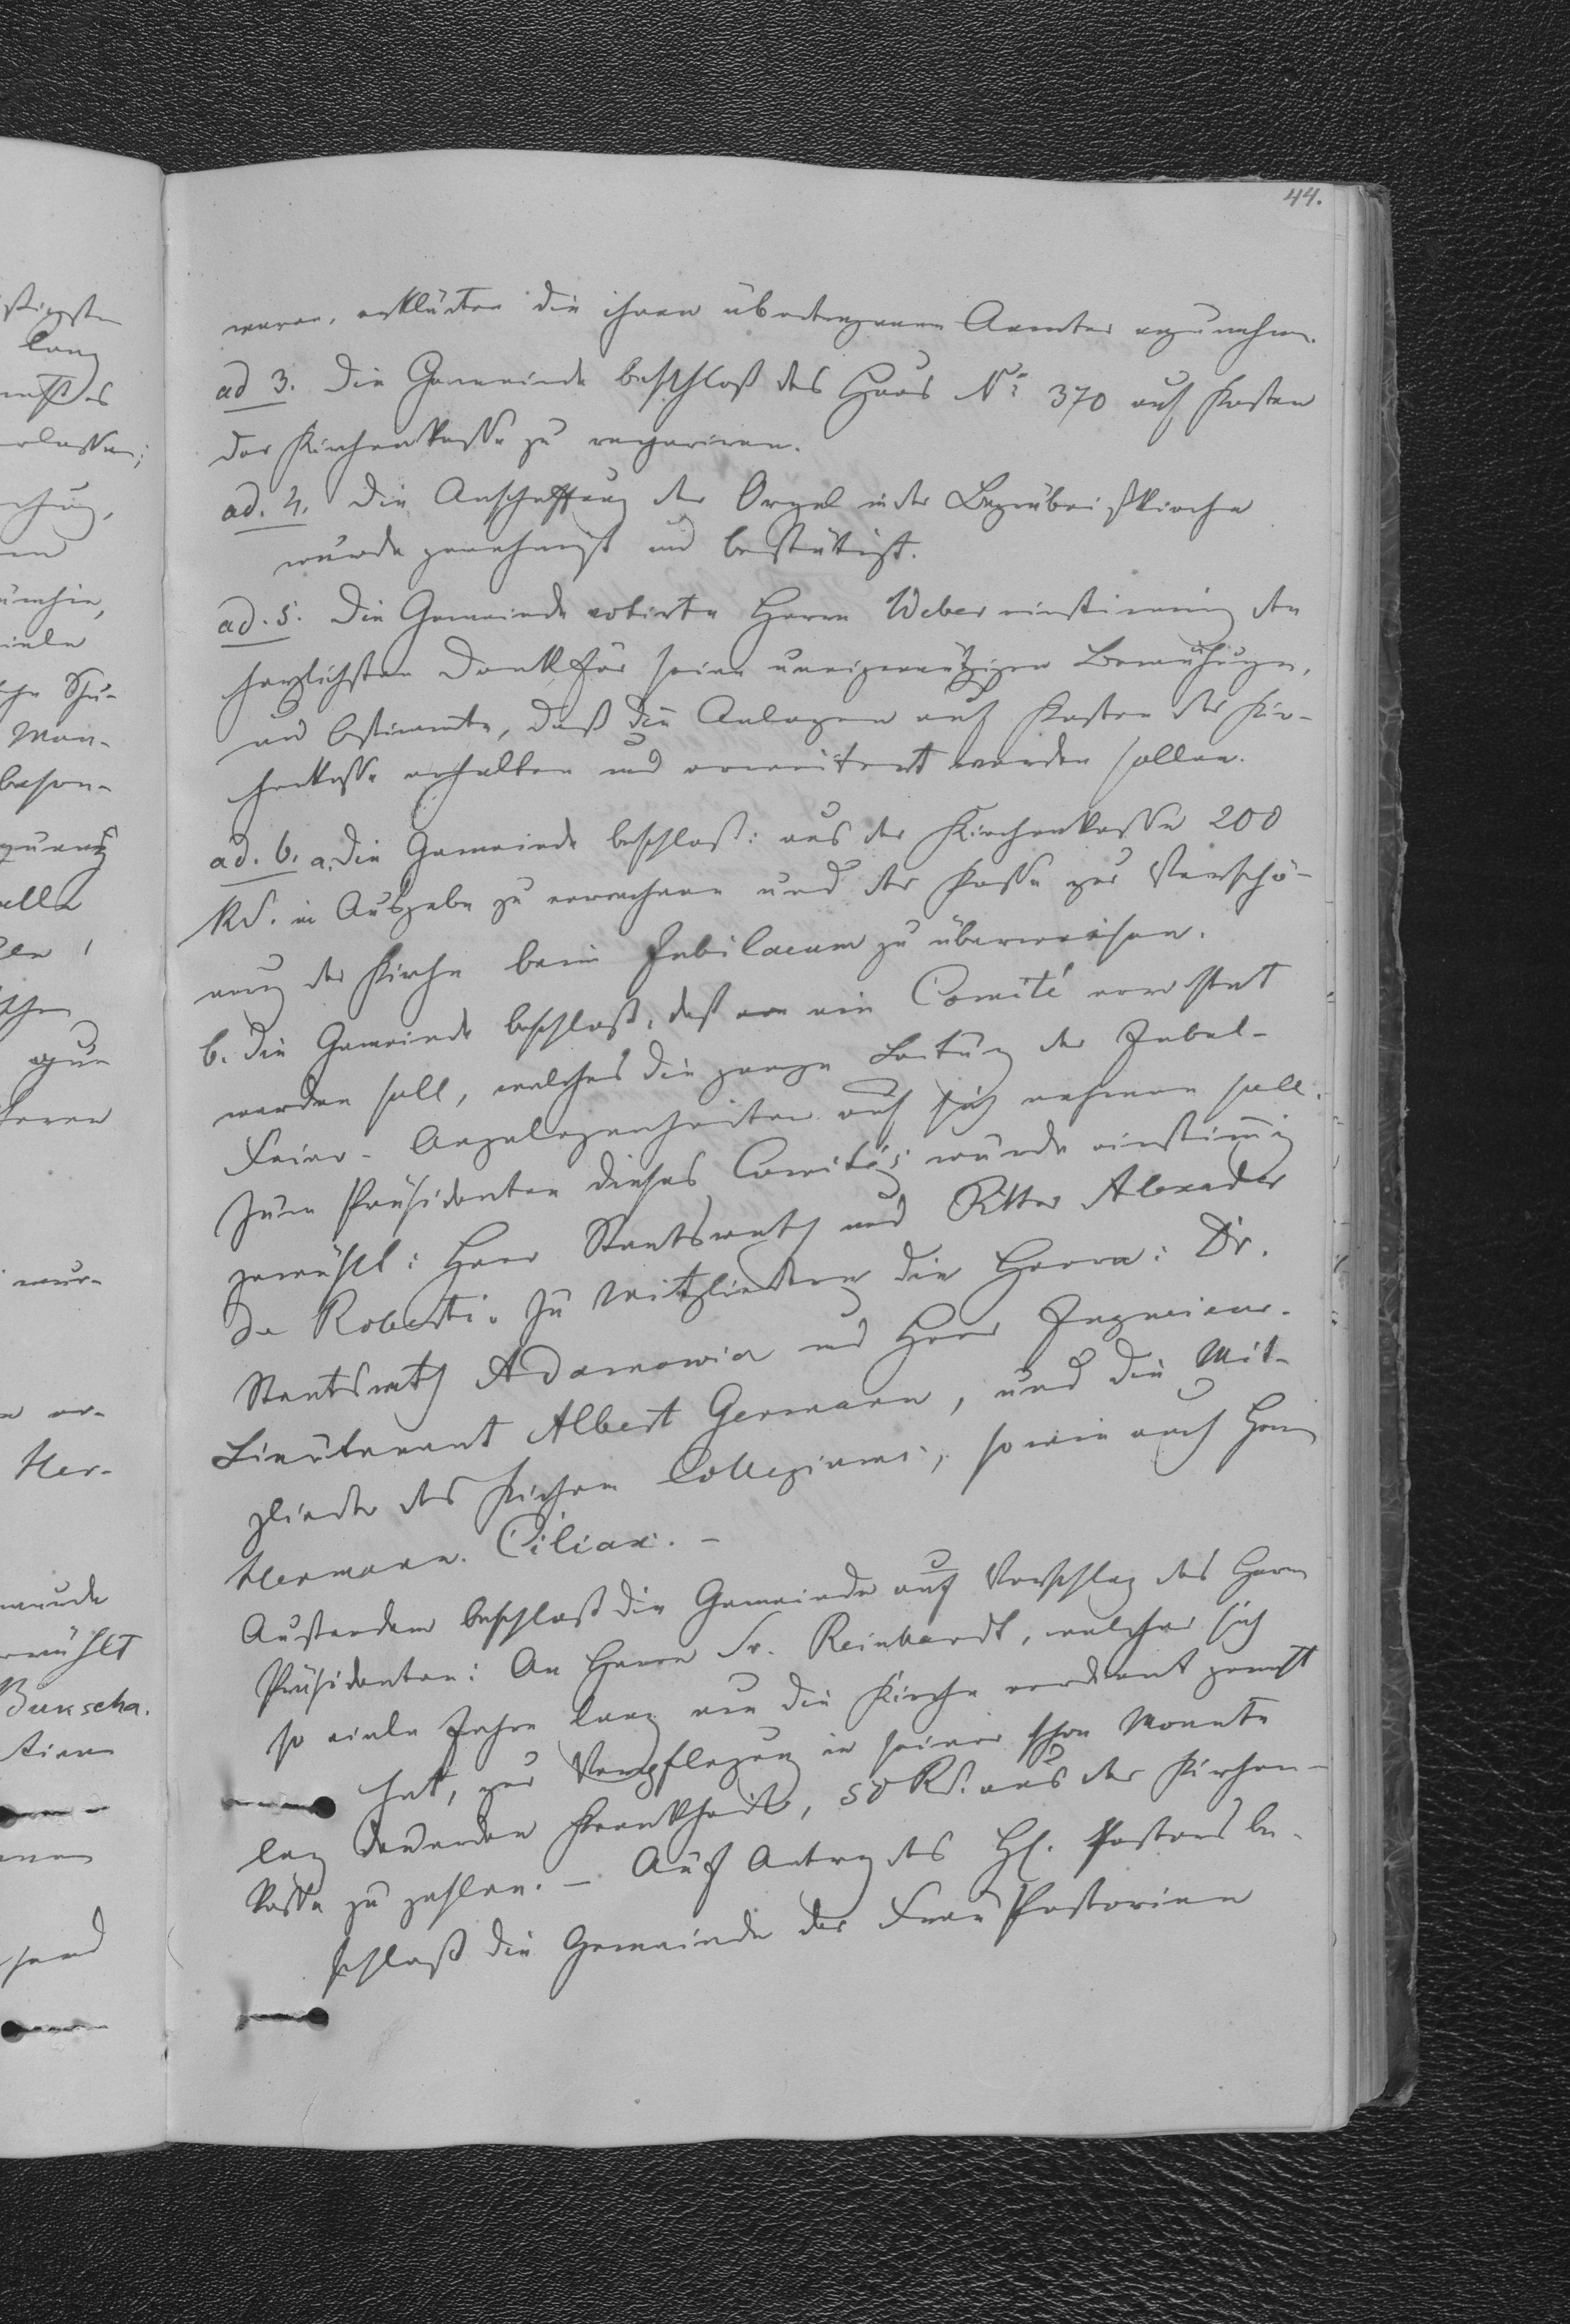 44.
waren, erklärten die ihnen übertragenen Aemter anzunehmen.
ad 3. Die Gemeinde beschloß das Haus No 370 auf Kosten
der Kirchenkasse zu repariren.
ad. 4. Die Anschaffung der Orgel in der Begräbnißkirche
wurde genehmigt und bestätigt.
ad. 5. Die Gemeinde votirte Herrn Weber einstimmig den
herzlichsten Dank für seine uneigennützigen Bemühungen,
und bestimmte, daß die Anlagen auf Kosten der Kir-
chenkasse erhalten und erweitert werden sollen.
ad. 6. a. Die Gemeinde beschloß: aus der Kirchenkasse 200
Rbl. in Ausgabe zu verrechnen und der Kasse zur Verschö-
nung der Kirche beim Jubilaeum zu überweisen.
b. Die Gemeinde beschloß, daß ein Comité
werden soll, welches die ganze Leitung der Jubel-
Feier-Angelegenheiten auf sich nehmen soll.
Zum Präsidenten dieses Comité's wurde einstimmig
gewählt: Herr Staatsrath und Ritter Alexander
de Roberti. Zu Mitgliedern die Herrn: Dr.
Staatsrath Adamowicz und Herr Ingenieur-
Lieutenant Albert Germann, und die Mit-
glieder des Kirchen Collegiums, sowie auch Herrn
Hermann Ciliax. -
Ausserdem beschloß die Gemeinde auf Vorschlag des Herrn
Präsidenten: An Herrn Fr. Reinhardt, welcher sich
so viele Jahre lang um die Kirche verdient gemacht
hat, zur Verpflegung in seiner schon Monate
lang dauernden Krankheit, 50 Rbl. aus der Kirchen-
kasse zu zahlen. - Auf Antrag des H. Pastors be-
schloß die Gemeinde der Frau Pastorinn